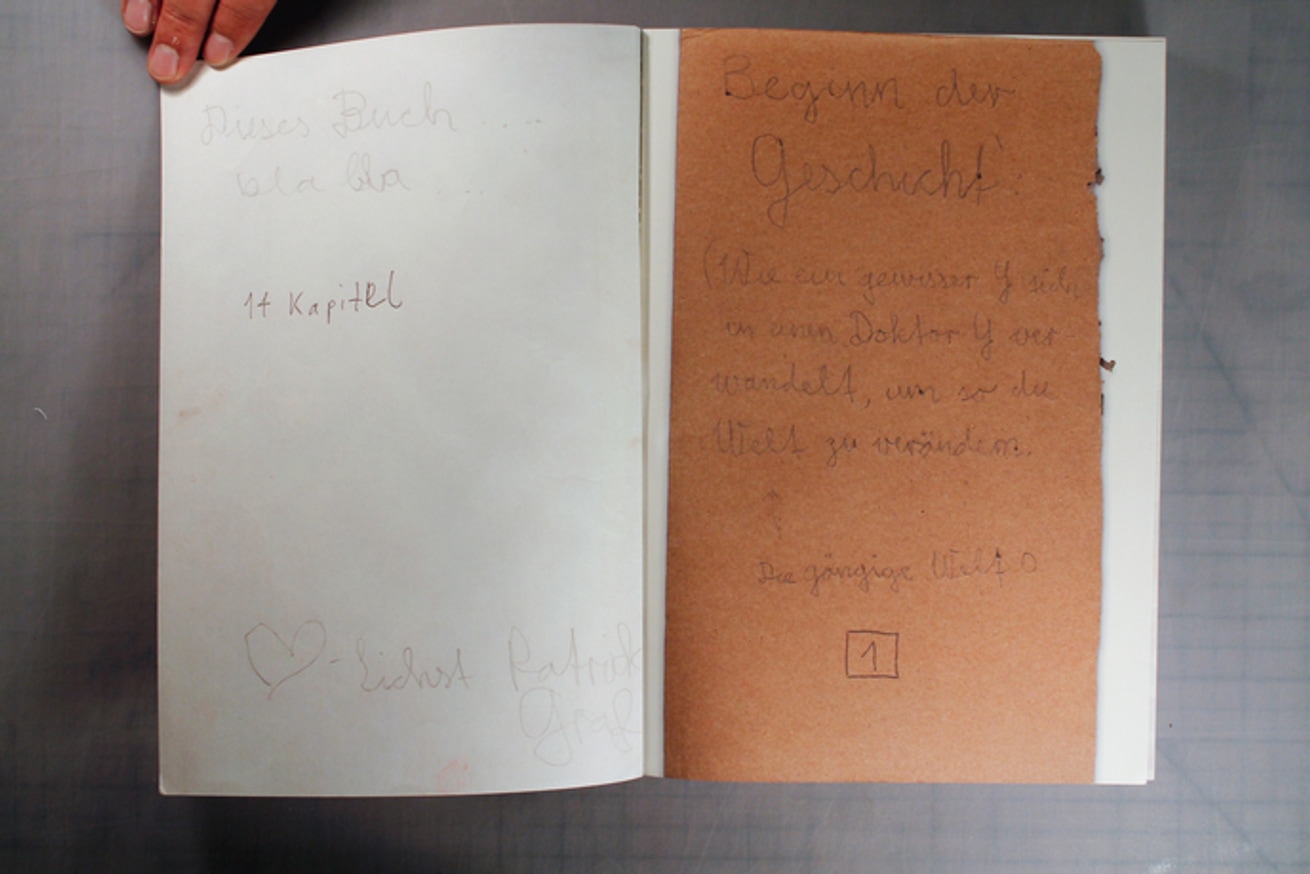 Dieses Buch ....
bla bla ...
14 Kapitel
♡-lichst Patrick
Graf
Beginn der
Geschicht':
(Wie ein gewisser Y sich
in einen Doktor Y ver-
wandelt, um so die
Welt zu verändern.
Die gängige Welt
1